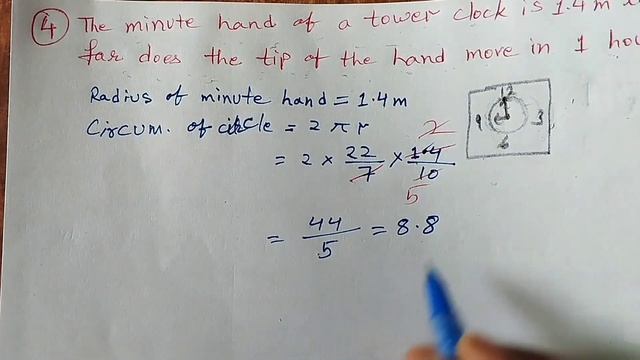 4 The minute hand of a tower clock is 1.4 m
far does the tip of the hand move in 1 hou
Radius of minute hand = 1.4m
Circum. of circle = 2 π r
= 2 × 22/7 × 14/10
2
5
= 44/5 = 8.8
12
9 3
6